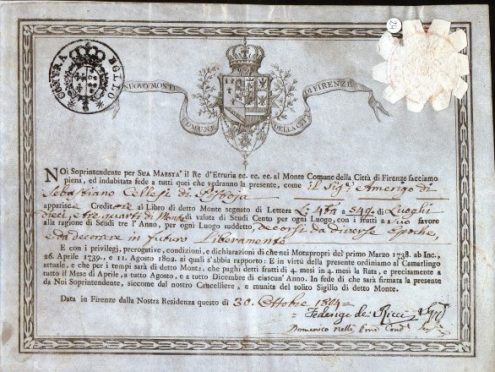 CARTA BOLLO
NUOVI MONTI
COMUNE
DELLA CITTÀ
DI FIRENZE
NOI Soprintendente per SUA MAESTA' il Re d'Etruria ec. ec. ec. al Monte Comune della Città di Firenze facciamo
piena, ed indubitata fede a tutti quei che vedranno la presente, come il Sig. Amerigo di
Sebastiano Cellesi di Pistoja
apparisce Creditore al Libro di detto Monte segnato di Lettera di Luoghi
dieci, e tre quarti di Monte di valuta di Scudi Cento per ogni Luogo, con i frutti a suo favore
alla ragione di Scudi tre l'Anno, per ogni Luogo suddetto, decorsi da diverse Epoche,
e da decorare in futuro liberamente
E con i privilegi, prerogative, condizioni, e dichiarazioni di che nei Motupropri del primo Marzo 1738. ab Inc.,
26. Aprile 1739., e 11. Agosto 1802. ai quali s' abbia rapporto: E in virtù della presente ordiniamo al Camarlingo
attuale, e che per i tempi sarà di detto Monte, che paghi detti frutti di 4. mesi in 4. mesi la Rata, e precisamente a
tutto il Mese di Aprile, a tutto Agosto, e a tutto Dicembre di ciascun' Anno. In fede di che sarà firmata la presente
da Noi Soprintendente, siccome dal nostro Cancelliere, e munita del solito Sigillo di detto Monte.
Data in Firenze dalla Nostra Residenza questo di 30. Ottobre 1804
Federigo de' Ricci
Domenico Nelli